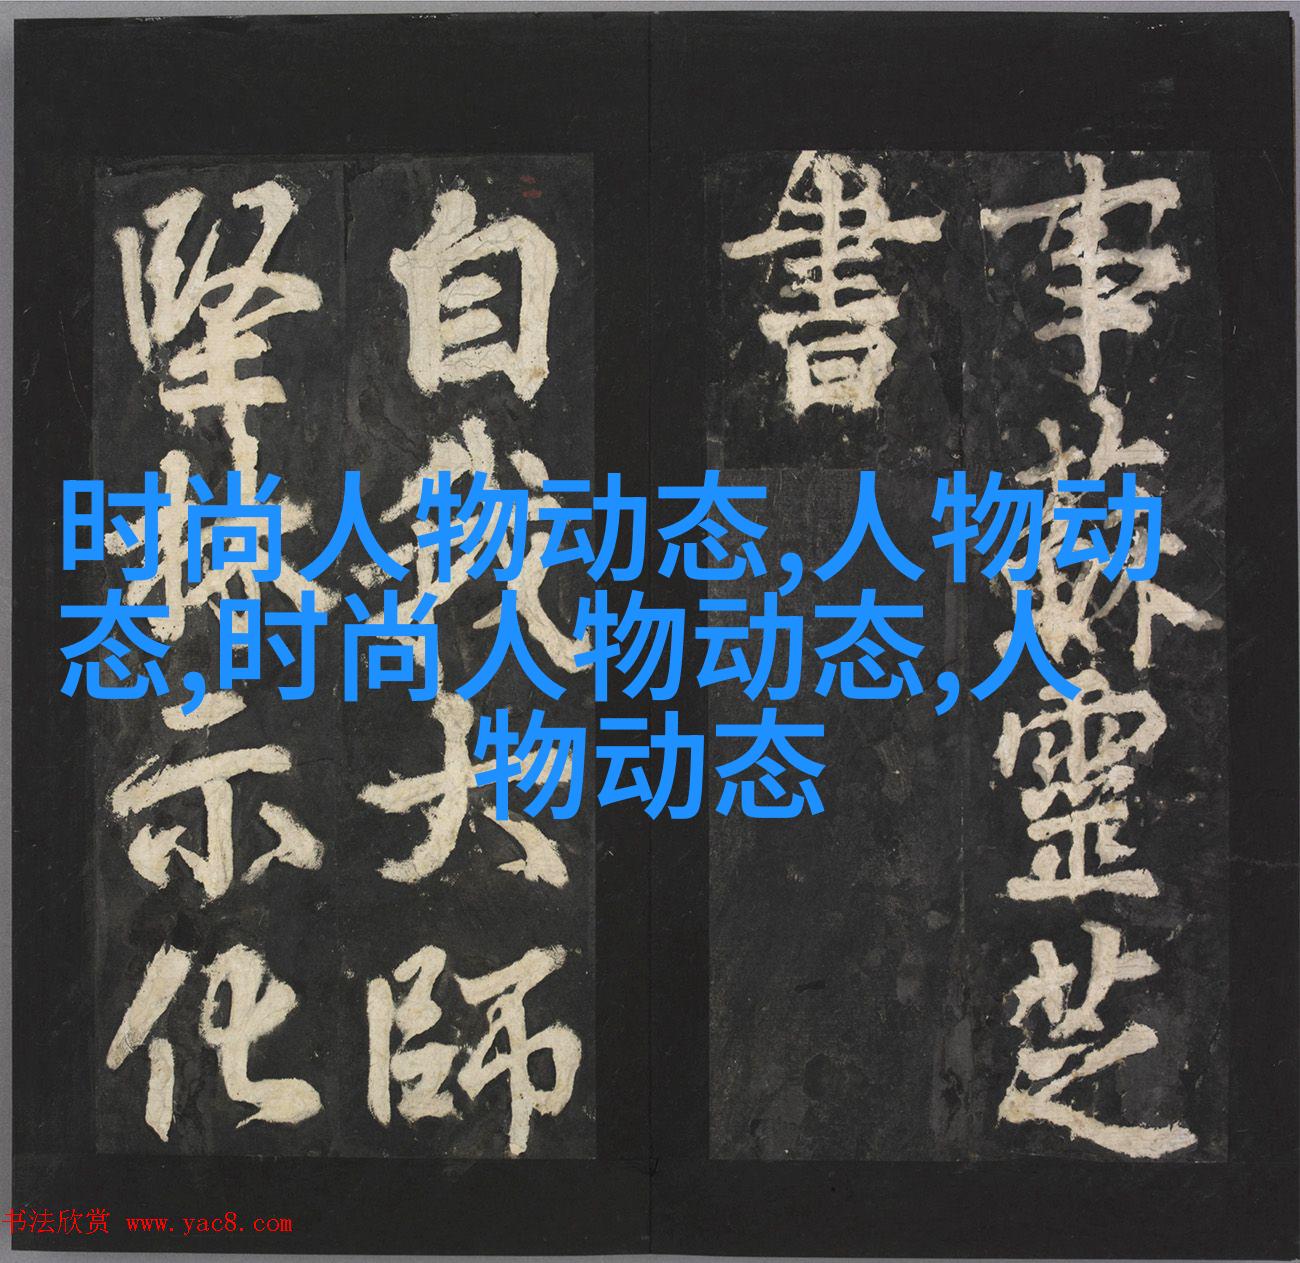 事蘇靈芝
書
自我大師
堅林示化
时尚人物动态,人物动
态,时尚人物动态,人
物动态
书法欣赏 www.yac8.com